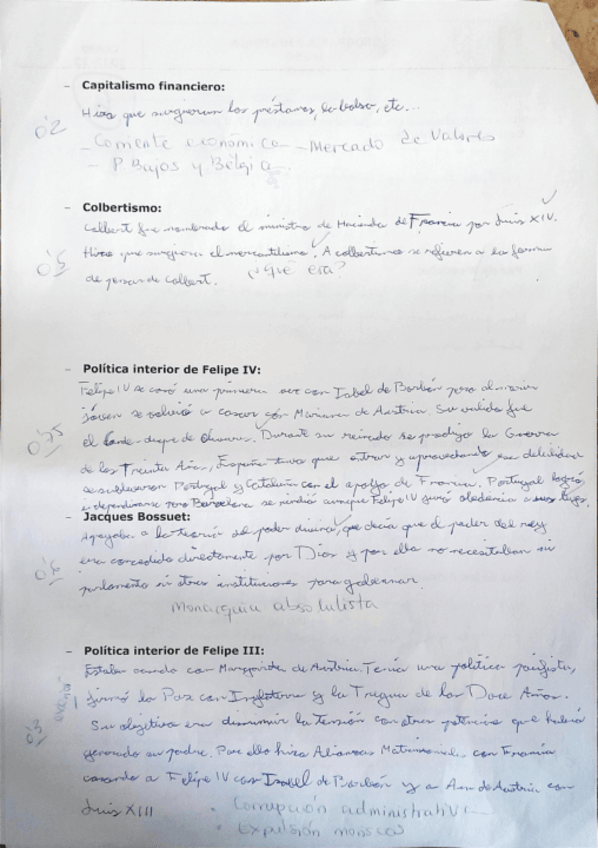 - Capitalismo financiero:
Hizo que surgieran los préstamos, la bolsa, etc...
0'2
- Corriente económica - Mercado de Valores
- P. Bajos y Bélgica.
- Colbertismo:
Colbert fue nombrado el ministro de Hacienda de Francia por Luis XIV.
Hizo que surgiera el mercantilismo. A colbertismo se refieren a la forma
0'5
de pensar de Colbert. ¿qué era?
- Política interior de Felipe IV:
Felipe IV se casó una primera vez con Isabel de Borbón pero al morir
joven se volvió a casar con Mariana de Austria. Su valido fue
el Conde-duque de Olivares. Durante su reinado se produjo la Guerra
0'75
de los Treinta Años, España tuvo que entrar y aprovechando esa debilidad
se sublevaron Portugal y Cataluña con el apoyo de Francia. Portugal logró
independizarse pero Barcelona se rindió aunque Felipe IV juró obediencia a sus leyes.
- Jacques Bossuet:
Apoyaba a la teoría del poder divino, que decía que el poder del rey
era concedido directamente por Dios y por ello no necesitaban un
0'6
parlamento ni otras instituciones para gobernar.
Monarquía absolutista
- Política interior de Felipe III:
Estaba casado con Margarita de Austria. Tenía una política pacifista,
exterior
firmó la Paz con Inglaterra y la Tregua de los Doce Años.
0'3
Su objetivo era disminuir la tensión con otras potencias que había
generado su padre. Por ello hizo Alianzas Matrimoniales con Francia
casando a Felipe IV con Isabel de Borbón y a Ana de Austria con
Luis XIII
• Corrupción administrativa
• Expulsión moriscos